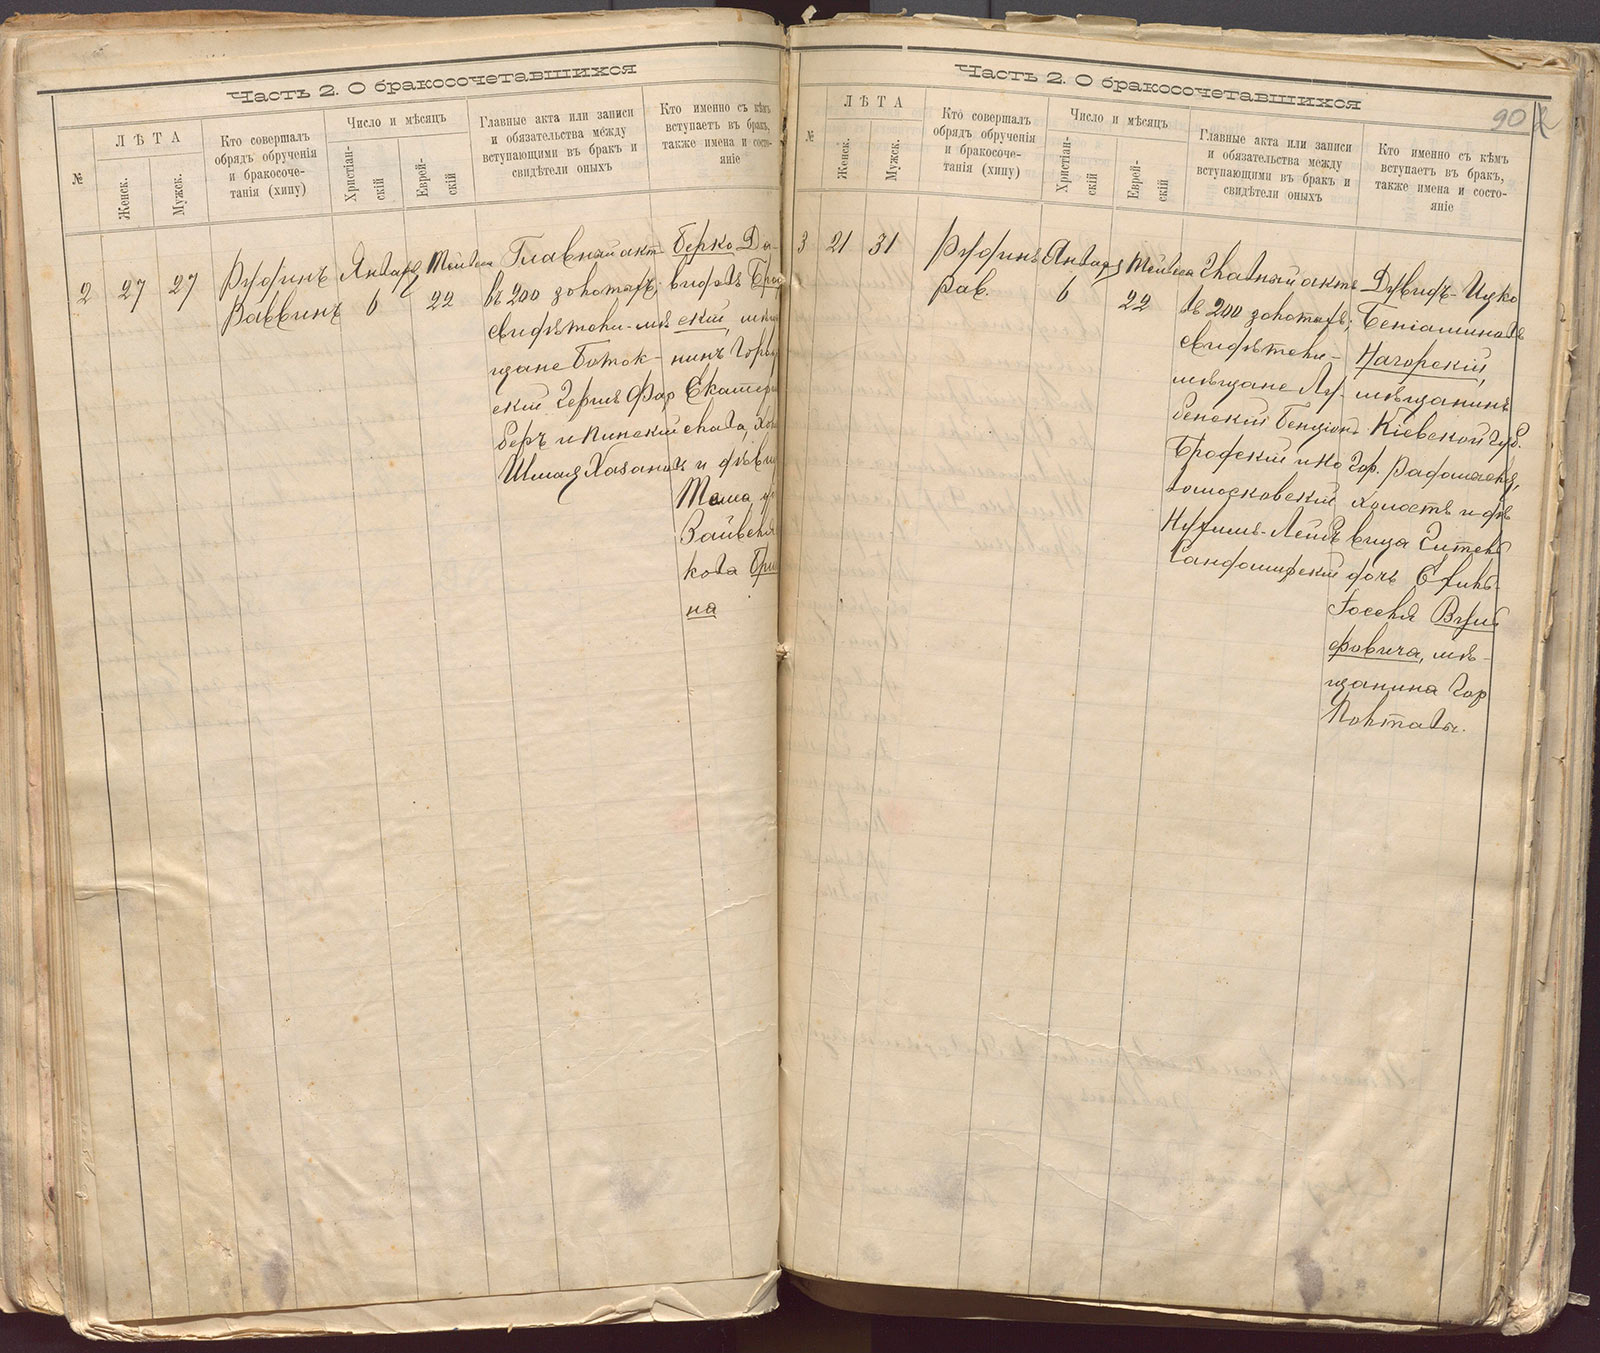 Часть 2. О бракосочетавшихся
№
ЛѢТА
Женск.
Мужск.
Кто совершалъ
обрядъ обрученія
и бракосоче-
танія (хипу)
Число и мѣсяцъ
Христіан-
скій
Еврей-
скій
Главные акта или записи
и обязательства между
вступающими въ бракъ и
свидѣтели оныхъ
Кто именно съ кѣмъ
вступаетъ въ бракъ,
также имена и состо-
яніе
2
27
27
Руфинъ
Раввинъ
Январь
6
22
Главный акт
въ 200 золотыхъ;
свидѣтели-мѣ
щане Боток-
скій Гершъ Фар
беръ и Пинскій
Шмая Хазанов
Берко Ду-
видовъ
скій, мѣщ
нинъ Горо
Екатери
слава, хо
ъ и дѣви
кова
на
Часть 2. О бракосочетавшихся
902
№
ЛѢТА
Женск.
Мужск.
Кто совершалъ
обрядъ обрученія
и бракосоче-
танія (хипу)
Число и мѣсяцъ
Христіан-
скій
Еврей-
скій
Главные акта или записи
и обязательства между
вступающими въ бракъ и
свидѣтели оныхъ
Кто именно съ кѣмъ
вступаетъ въ бракъ,
также имена и состо-
яніе
3
21
31
Руфинъ
Рав.
Январь
6
22
Главный актъ
въ 200 золотыхъ;
свидѣтели-
мѣщане Лу-
бенскій Бенціонъ
Бродскій и Но
вомосковскій
Нухимъ-Лейбъ
Сандомирскій
Дувидъ-Ицко
Беніаминовъ
Нагорскій,
мѣщанинъ
Кіевской губ.
гор. Радомысля,
холостъ и дѣ
вица Гитель
дочь
Іосселя Вуль
фовича, мѣ-
щанина гор
Полтавы.